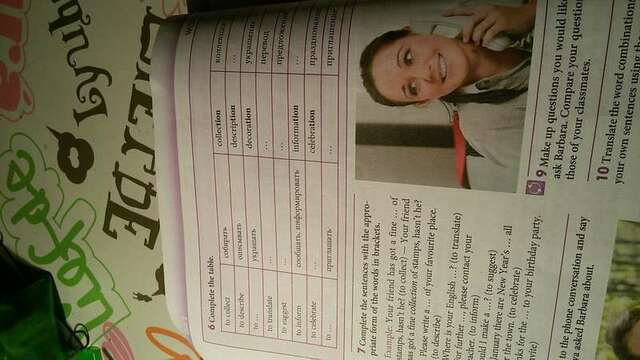 6 Complete the table.
to collect собирать collection коллекция
to describe описывать description ...
to ... украшать decoration украшение
to translate ... ... перевод
to suggest ... ... предложение
to inform сообщать, информировать information ...
to celebrate ... celebration празднование
to ... приглашать ... приглашение
7 Complete the sentences with the appro-
priate form of the words in brackets.
Example: Your friend has got a fine ... of
stamps, hasn't he? (to collect) — Your friend
has got a fine collection of stamps, hasn't he?
Please write a ... of your favourite place.
(to describe)
Where is your English ...? (to translate)
further ... please contact your
(to inform)
I make a ...? (to suggest)
January there are New Year's ... all
the town. (to celebrate)
for the ... to your birthday party.
the phone conversation and say
asked Barbara about.
9 Make up questions you would like
ask Barbara. Compare your question
those of your classmates.
10 Translate the word combination
your own sentences using the